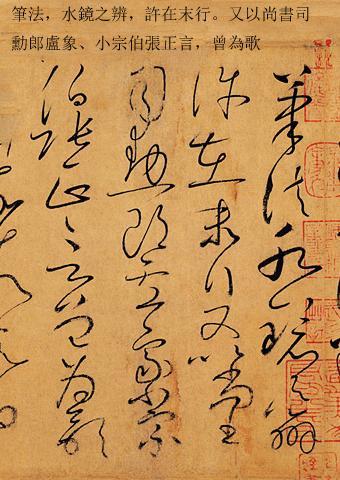 筆法，水鏡之辨，許在末行。又以尚書司
勳郎盧象、小宗伯張正言，曾為歌
筆法水鏡之辨
許在末行又以尚書
司勳郎盧象小宗
伯張正言曾為歌